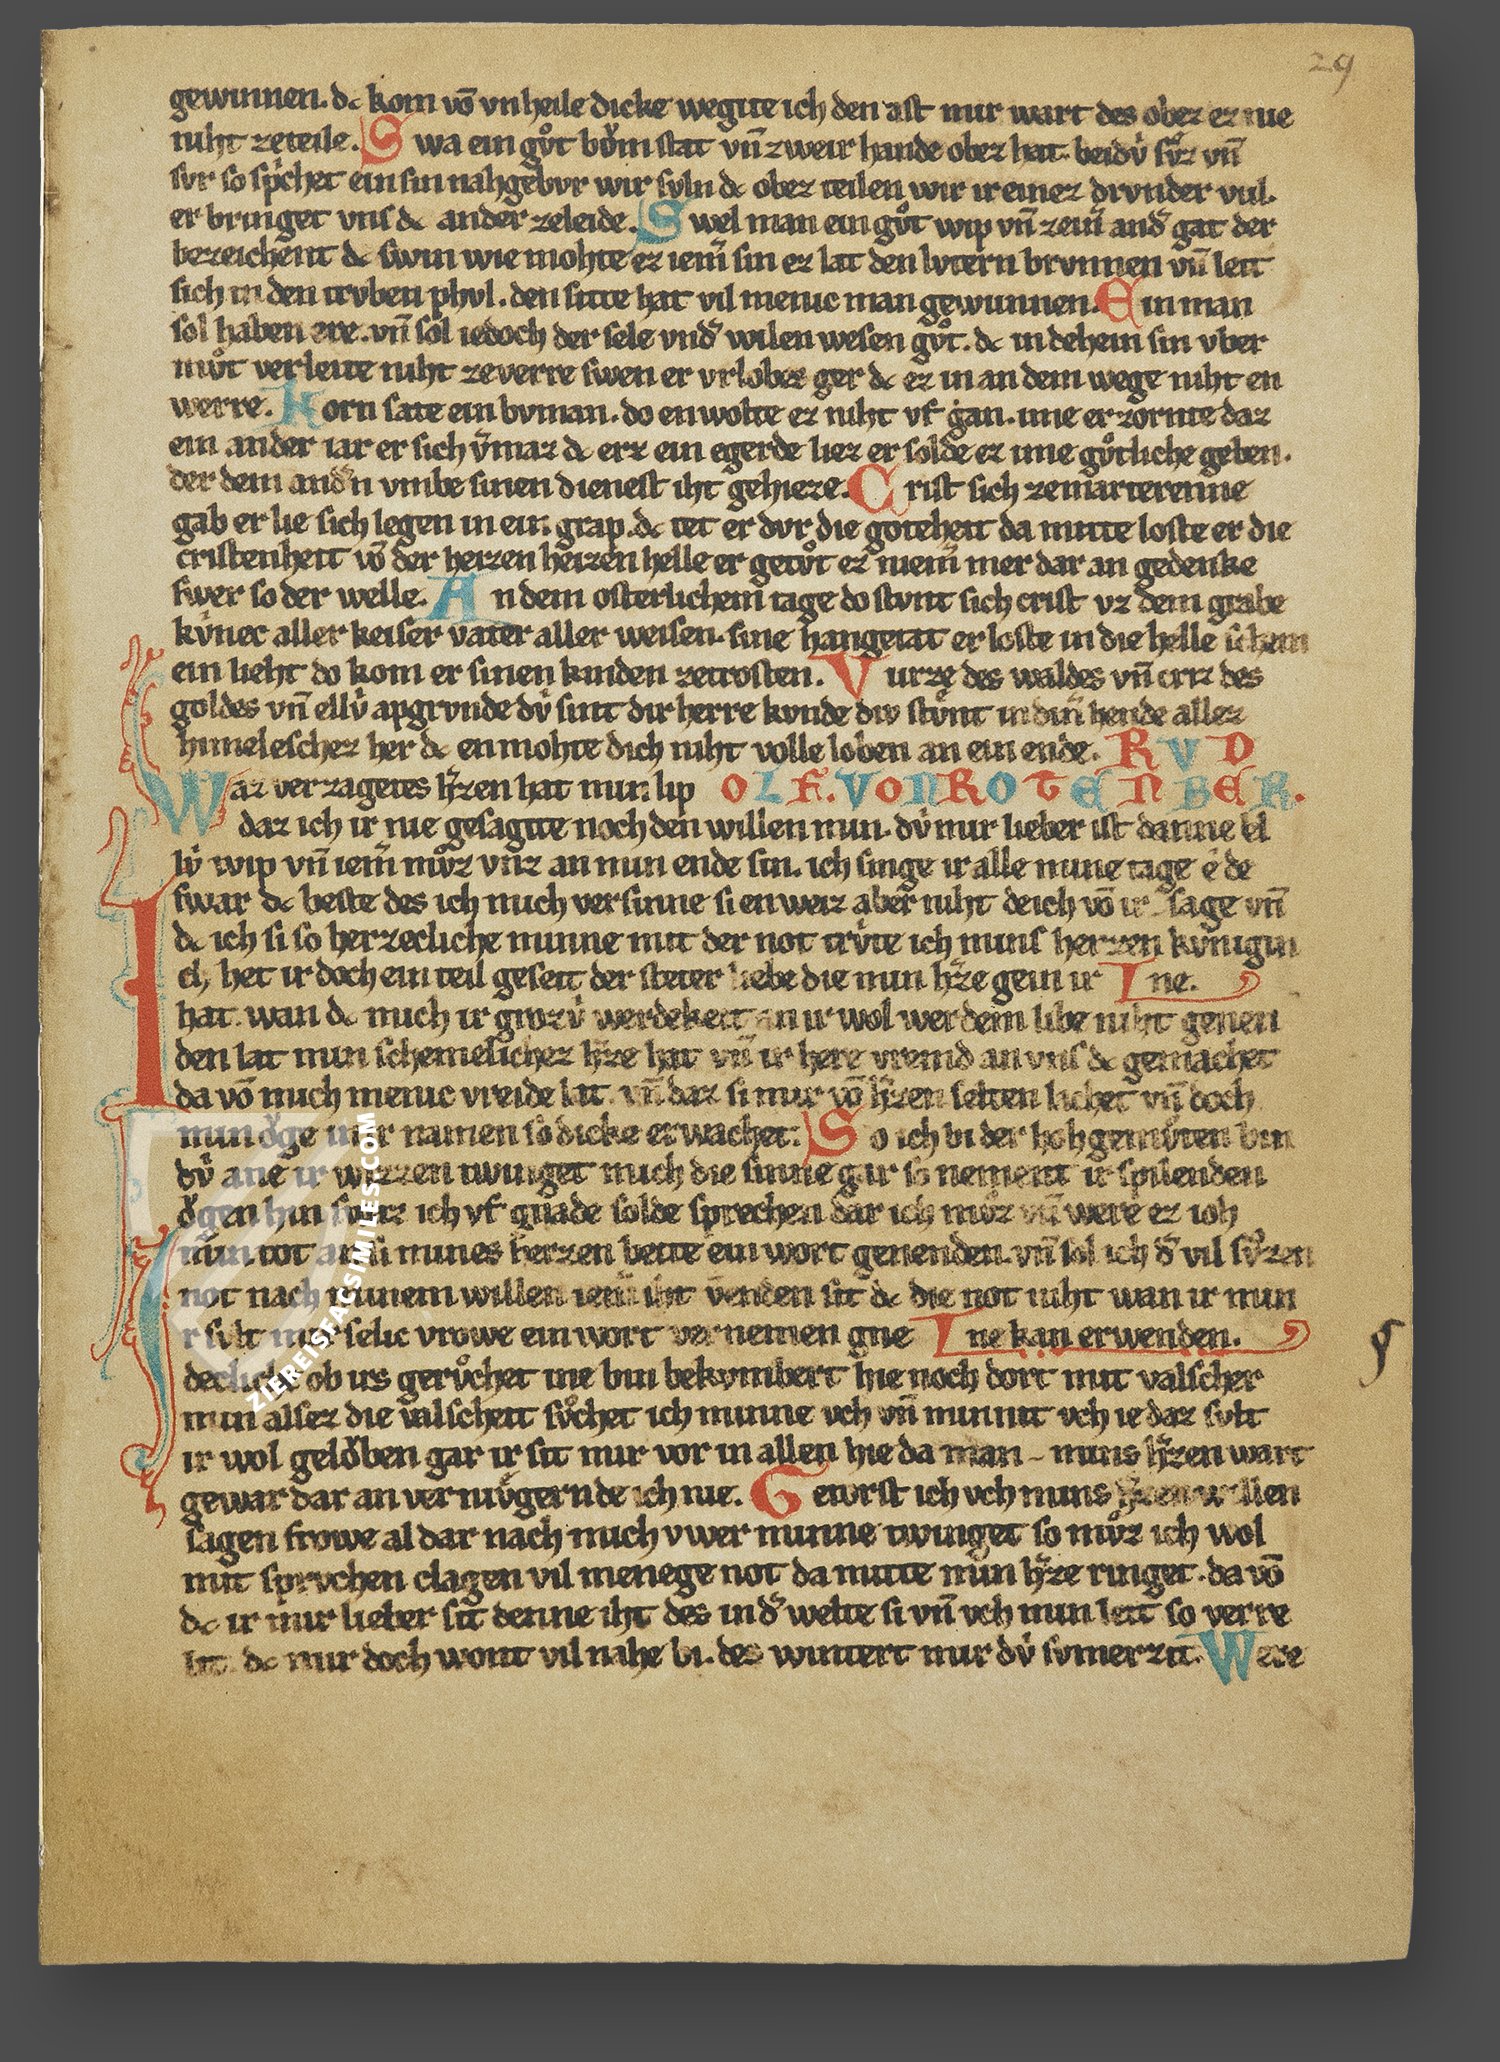 29
gewinnen. dc kom vō vnheile dicke wegite ich den ast mir wart des obez ez nie
niht zeteile. Swa ein gůt bǒm stat vn̄ zweir hande obez hat. beidv̇ sv̊z vn̄
svr so sp̊chet ein sin nahgebvr wir svln dc obez teilen wir ir einez drvnder vul.
er bringet vns dc ander zeleide. Swel man ein gůt wip vn̄ zein̄ and̄ gat der
bezeichent dc swin wie mohte ez iem̄ sin ez lat den lvtern brvnnen vn̄ leit
sich in den trvben phvl. den sitte hat vil menic man gewunnen. Ein man
sol haben ere. vn̄ sol iedoch der sele vnd̄ wilen wesen gůt. dc in dehein sin vber
můt verleite niht zeverre swen er vrlobes ger dc ez in an dem wege niht en
werre. Korn sate ein bvman. do enwolte ez niht vf gan. ime erzornte daz
ein ander iar er sich v̄maz dc erz ein egerde liez er solde ez ime gůtliche geben.
der dem and̄n vmbe sinen dienest iht gehieze. Crist sich zemarterenne
gab er lie sich legen in ein grap. dc tet er dvr die gotehett da mitte loste er die
cristenheit vō der heizen heizen helle er getůt ez niem̄ mer dar an gedenke
swer so der welle. An dem osterlichem tage do stvnt sich crist vz dem grabe
kv̇nec aller keiser vater aller weisen. sine hangetat er loste in die helle schein
ein lieht do kom er sinen kinden zetrosten. Vurze des waldes vn̄ criz des
goldes vn̄ ellv̇ apgrvnde dv̇ sint dir herre kvnde div stv̊nt in din̄ hende allez
himeleschez her dc enmohte dich niht volle loben an ein ende. RVD
Waz verzagetes h̄zen hat min lip OLF. VON ROTENBER.
daz ich ir nie gesagite noch den willen min. dv̇ mir lieber ist danne el
lv̇ wip vn̄ iem̄ můz vnz an min ende sin. ich singe ir alle mine tage e de
swar dc beste des ich mich versinne si enweiz aber niht deich vō ir sage vn̄
dc ich si so herzecliche minne mit der not trv̇te ich mins herzen kv̇nigin
Ich het ir doch ein teil geseit der steter liebe die min h̄ze gein ir ne.
hat. wan dc mich ir grozv̇ werdekeit an ir wol werdem libe niht genen
den lat min schemelichez h̄ze hat vn̄ ir here vremd an vns dc gemachet
da vō mich menic vreide lat. vn̄ daz si mir vō h̄zen selten lachet vn̄ doch
min ǒge in ir namen so dicke erwachet. So ich bi der hohgemv̊ten bin
dv̇ ane ir wizzen twinget mich die sinne gar so nement ir spilenden
ǒgen hin swaz ich vf gnade solde sprechen dar ich můz vn̄ were ez ioh
min tot an si mines herzen bette ein wort genenden. vn̄ sol ich d̄ vil sv̊zen
not nach minem willen iem̄ iht v̄enden sit dc die not niht wan ir min
Ir svlt mir selic vrowe ein wort vernemen gne ne kan erwenden.
decliche ob irs gerůchet ine bin bekvmbert hie noch dort mit valscher
min alsez die valscheit sůchet ich minne vch vn̄ minnit vch ie daz svlt
ir wol gelǒben gar ir sit mir vor in allen hie da man - mins h̄zen wart
gewar dar an vermv̇gernde ich nie. Getorst ich vch mins h̄zen willen
sagen frowe al dar nach mich vwer minne twinget so můz ich wol
mit sprvchen clagen vil menege not da mitte min h̄ze ringet. da vō
dc ir mir lieber sit denne iht des in d̄ welte si vn̄ vch min leit so verre
lit. dc mir doch wont vil nahe bi. des wintert mir dv̇ svmerzit. Wede
ZIEREISFACSIMILES.COM